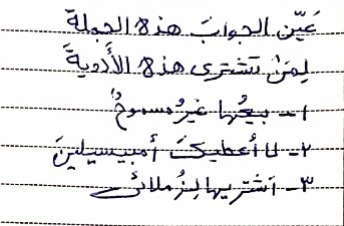 عَيّن الجوابَ هذه الجملة
لِمَنْ تَشتری هذه الأَدويةَ
١- بيعُها غيرُ مسموحٌ
٢- لا أُعطيكَ أمبيسيلينَ
٣- اَشتريها لِزُملائی